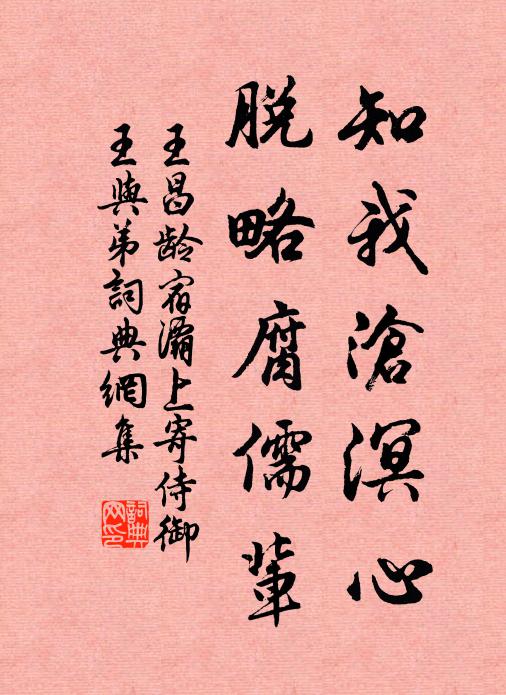 知我滄溟心
脱略腐儒輩
王昌龄宿灞上寄侍御
王與弟詞典網集
詞典
网印